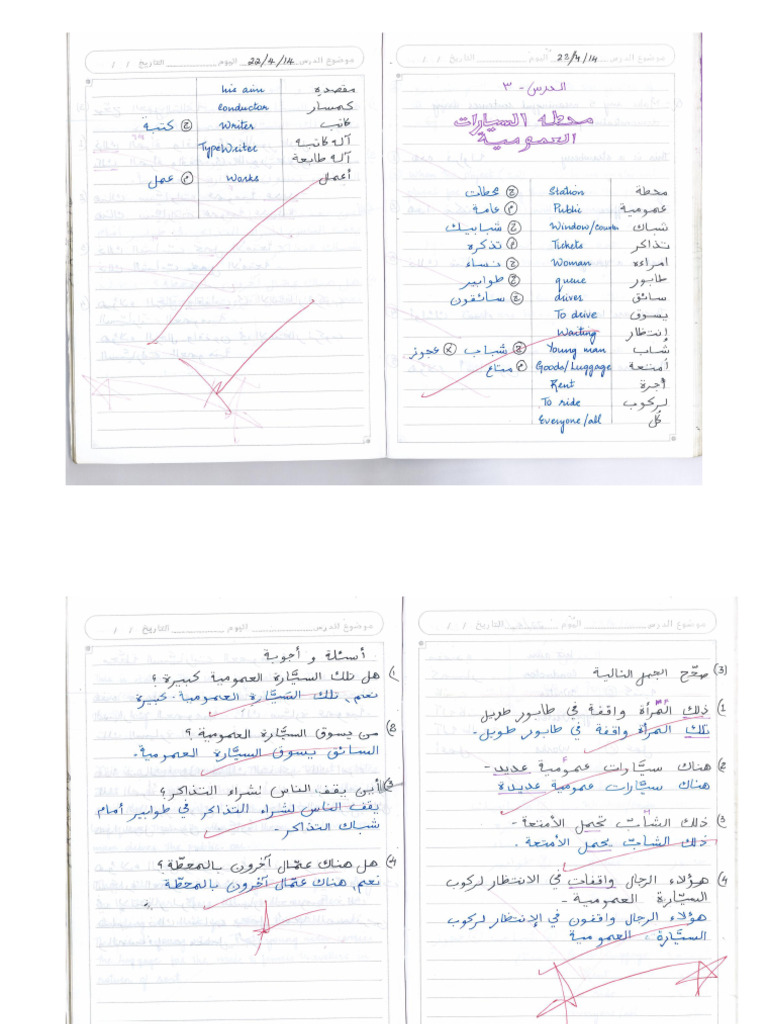 موضوع الدرس اليوم 22/4/14 التاريخ / /
الدرس - ٣
محطه السيارات
العمومية
محطة Station ج محطات
عمومية Public م عامة
شباك Window/counter ج شبابيك
تذاكر Tickets م تذكرة
امراءة Woman ج نساء
طابور queue ج طوابير
سائق driver ج سائقون
يسوق To drive
إنتظار Waiting
شاب Young man ج شباب x عجوز
أمتعة Goods/Luggage م متاع
أجرة Rent
لركوب To ride
كل Everyone/all
موضوع الدرس اليوم 22/4/14 التاريخ / /
مقصده his aim
كمسار conductor
كاتب Writer ج كتبة
آله كاتبة TypeWriter
آلة طابعة
أعمل Works م عمل
موضوع الدرس اليوم التاريخ / /
(3) صحّح الجمل التالية
(1 ذلك المرأة واقفة في طابور طويل
تلك المرأة واقفة في طابور طويل.
(2 هناك سيّارات عمومية عديد -
هناك سيّارات عمومية عديدة
(3 ذلك الشابّ تحمل الأمتعة -
ذلك الشابّ يحمل الأمتعة.
(4 هؤلاء الرجال واقفات في الانتظار لركوب
السيّارة العمومية -
هؤلاء الرجال واقفون في الإنتظار لركوب
السيّارة العمومية
موضوع الدرس اليوم التاريخ / /
أسئلة و أجوبة
(1 هل تلك السيّارة العمومية كبيرة؟
نعم، تلك السيّارة العمومية كبيرة
(2 من يسوق السيّارة العمومية؟
السائق يسوق السيّارة العمومية.
(3 أين يقف الناس لشراء التذاكر؟
يقف الناس لشراء التذاكر في طوابير أمام
شباك التذاكر -
(4 هل هناك عمّال آخرون بالمحطّة؟
نعم، هناك عمّال آخرون بالمحطّة